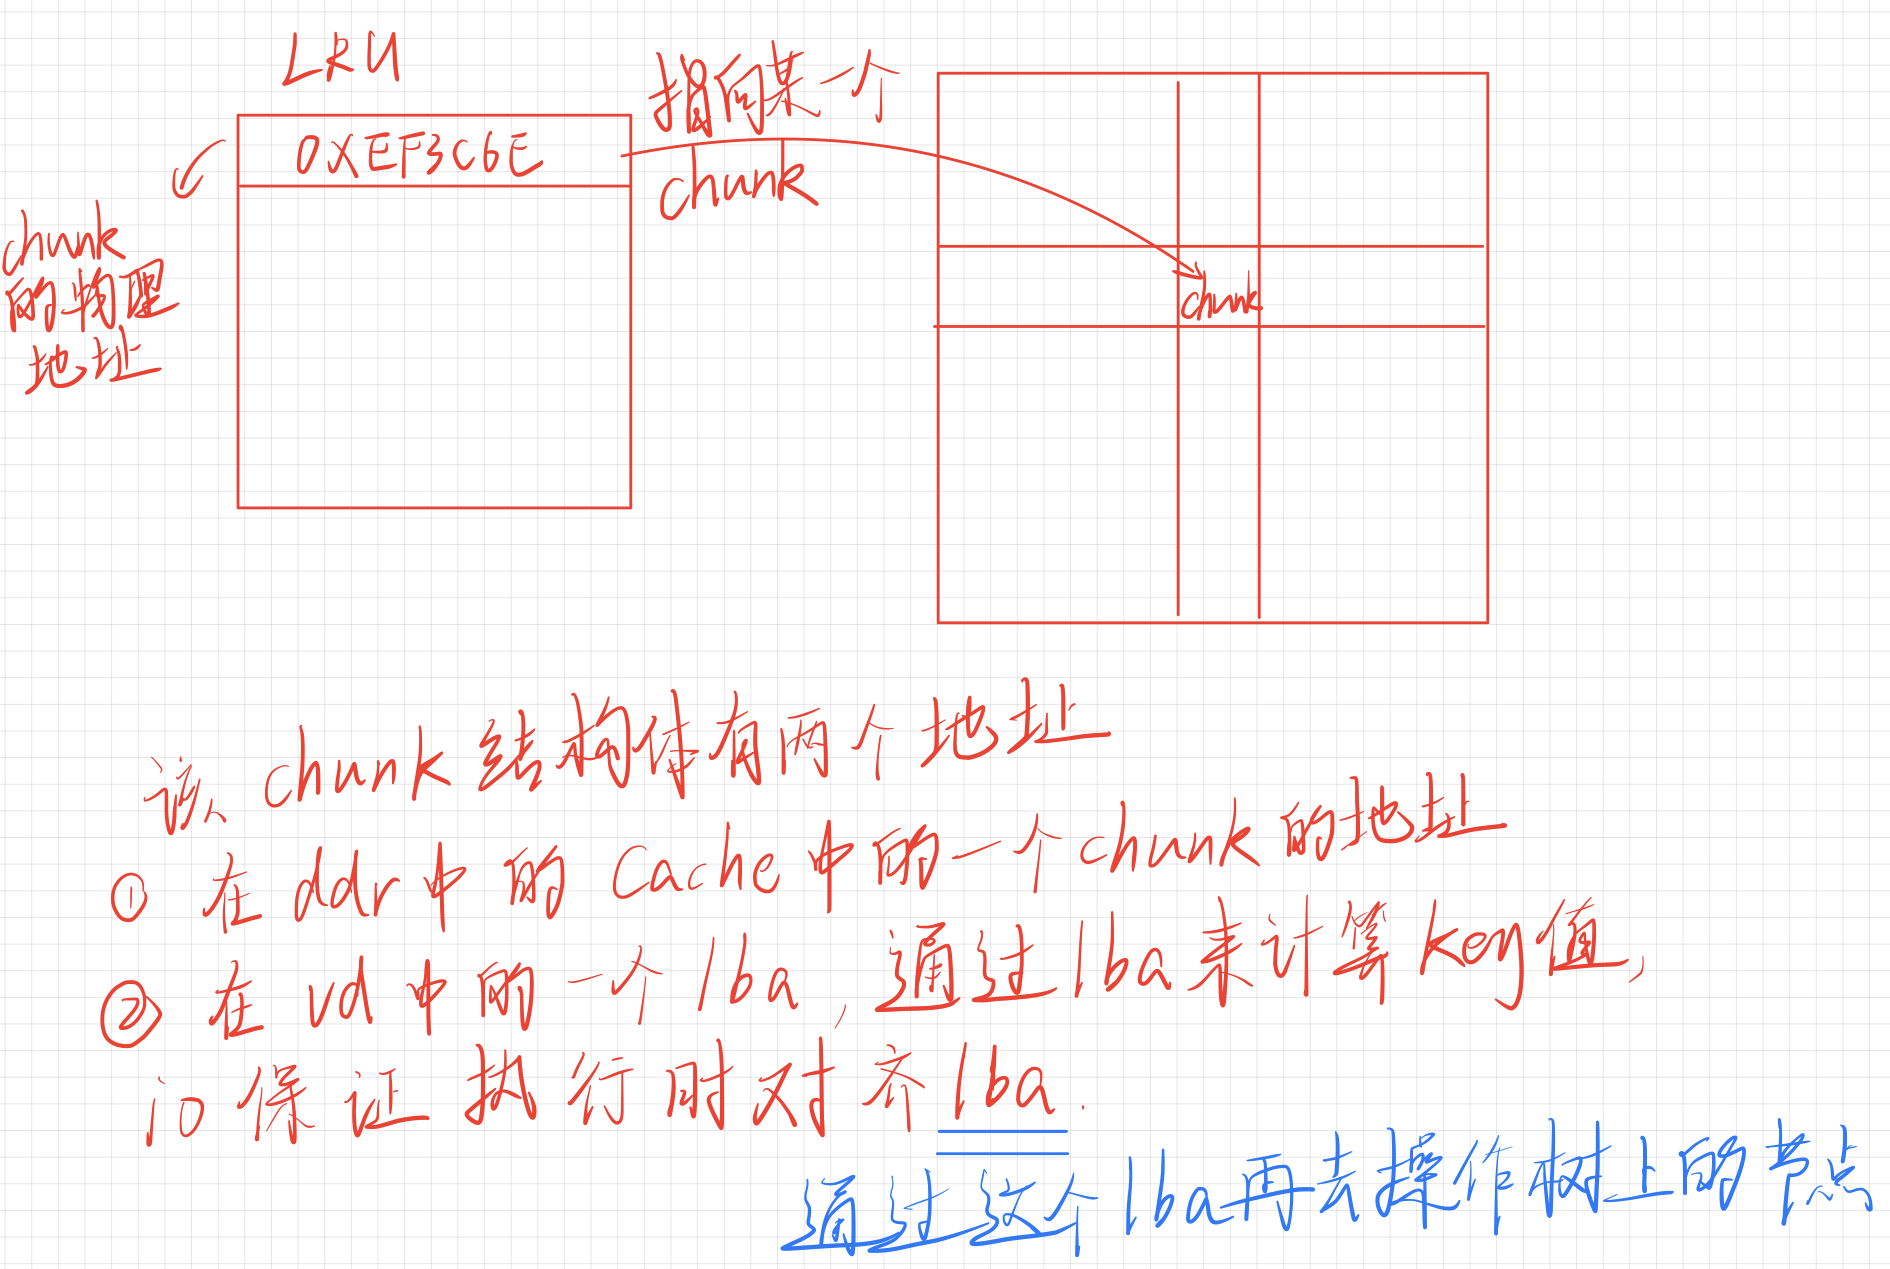 LRU
指向某一个
chunk
0XEF3C6E
chunk
的物理
地址
chunk
该chunk结构体有两个地址
① 在ddr中的Cache中的一个chunk的地址
② 在vd中的一个lba,通过lba来计算key值,
io保证执行时对齐lba.
通过这个lba再去操作树上的节点